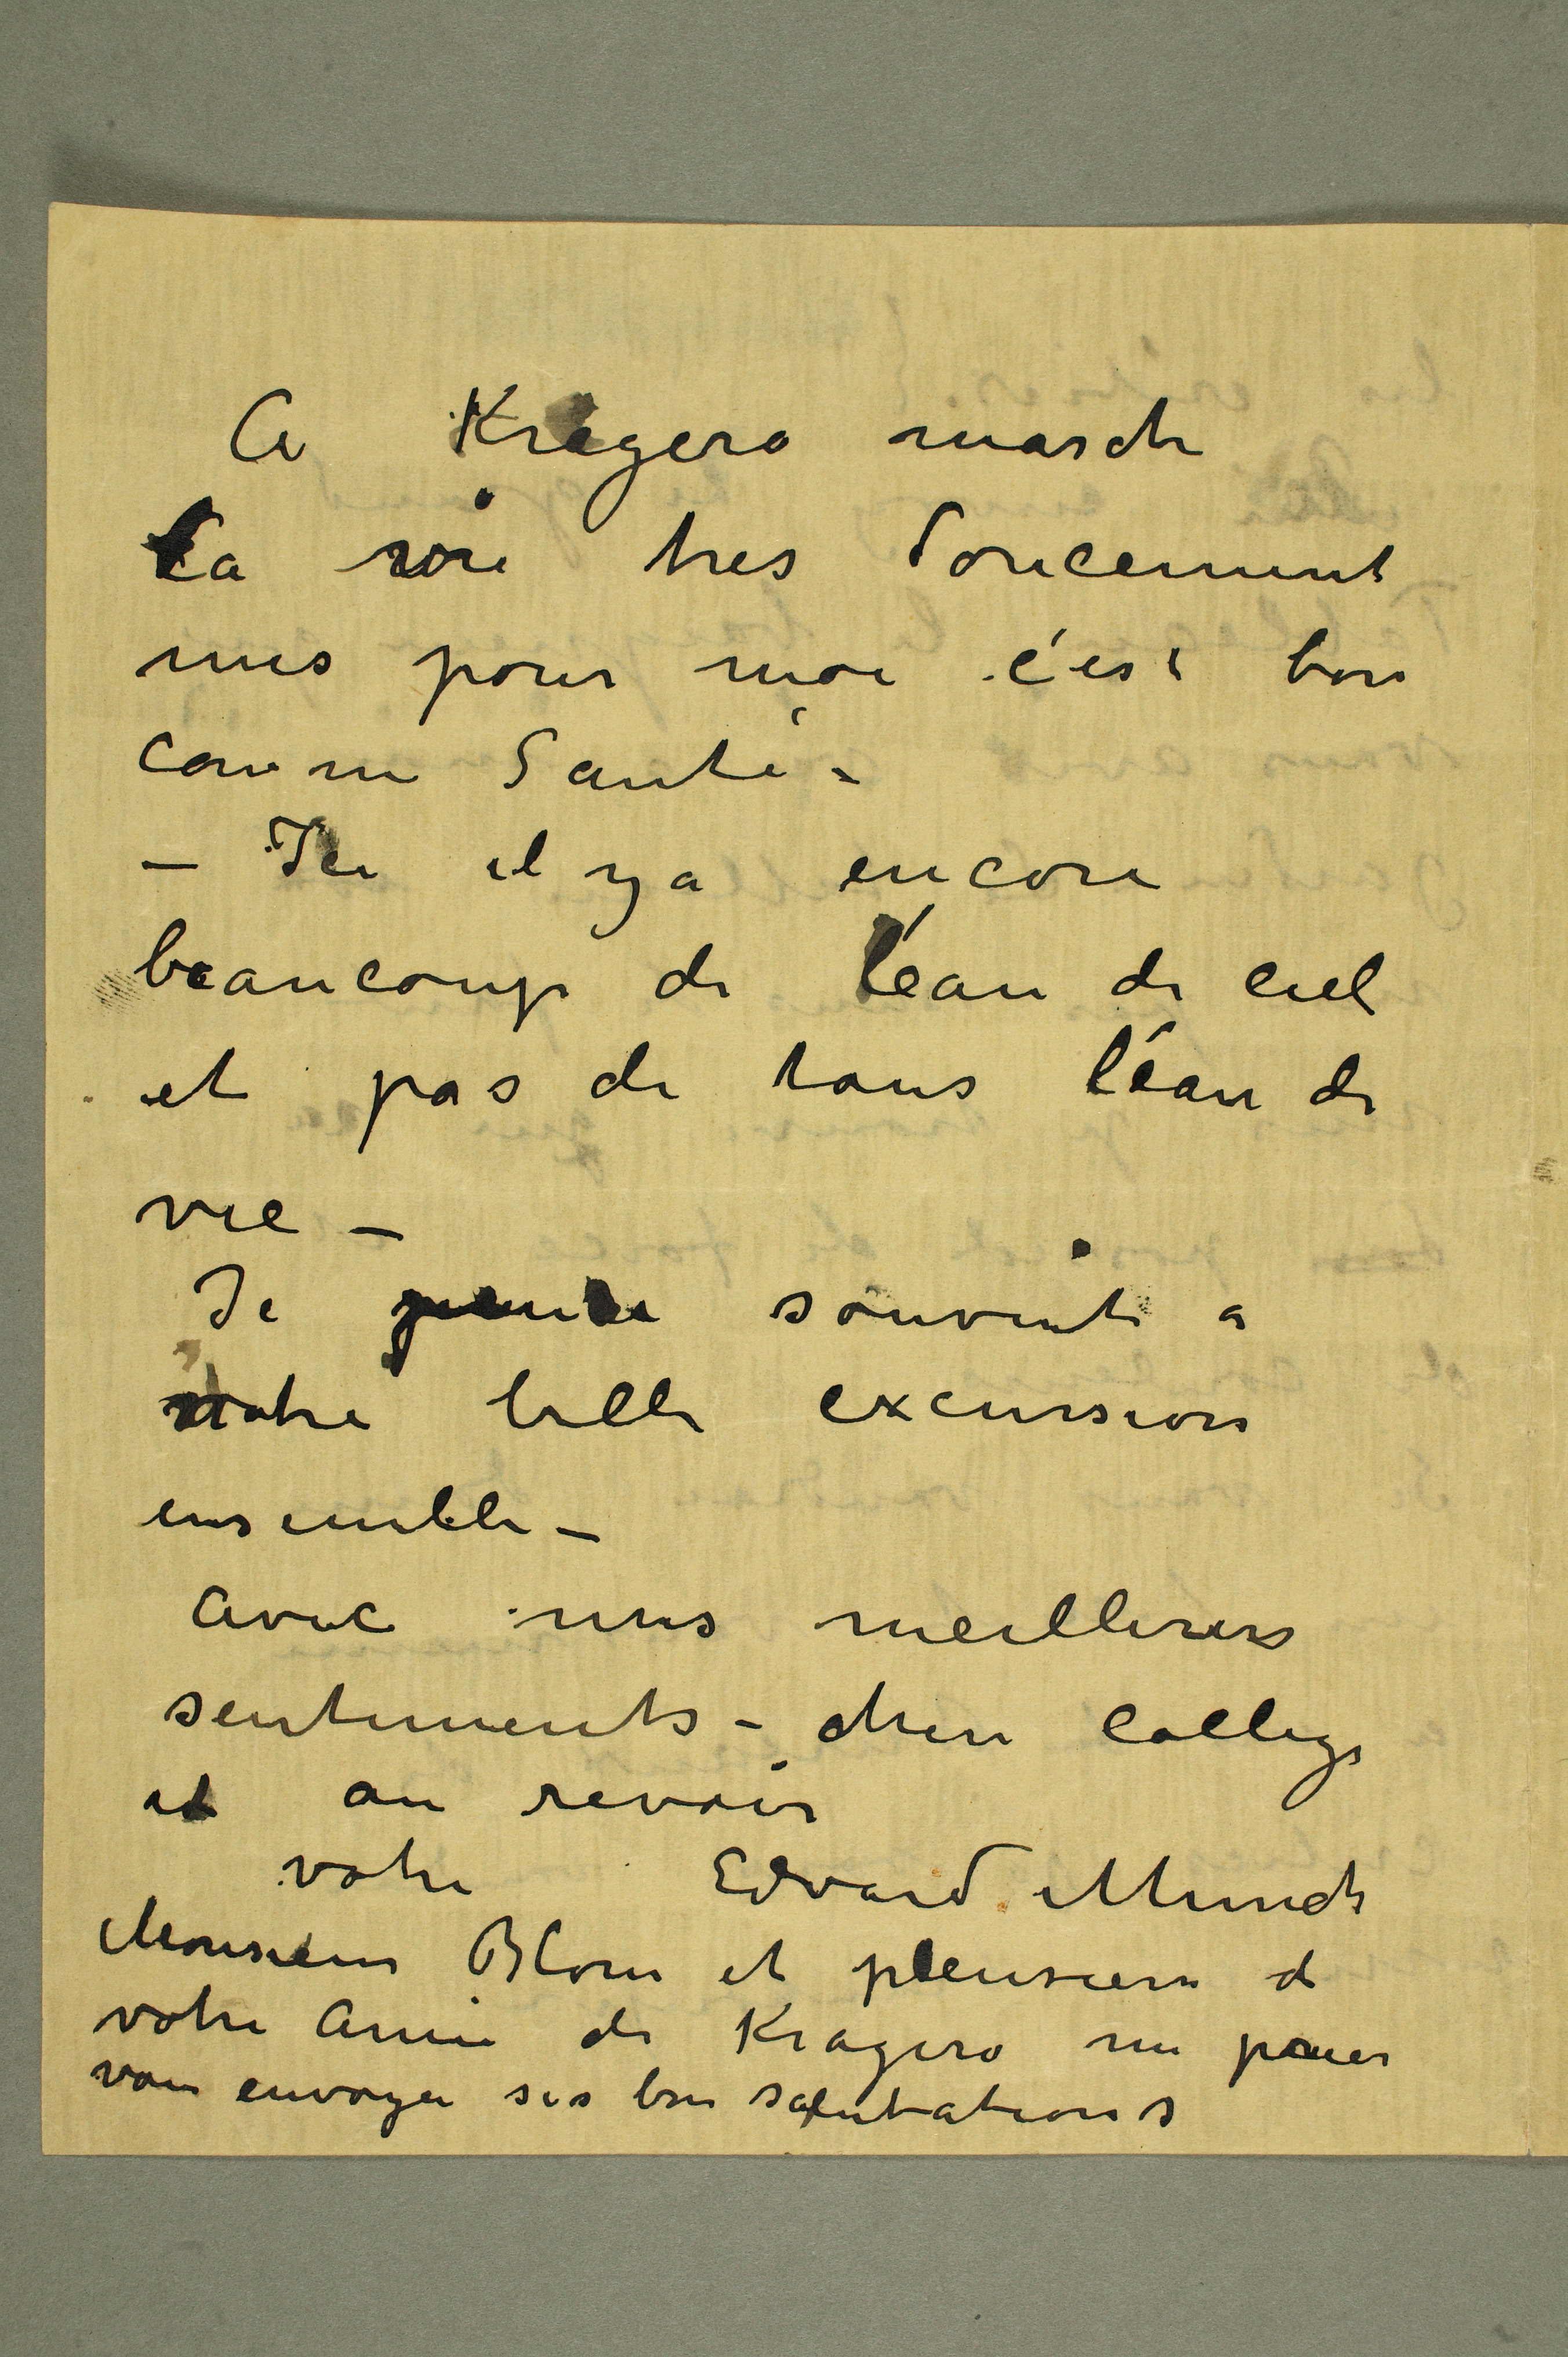 A Kragerø marsch
la vie tres doucement
mes pour moi c'est bon
comme Santé –
– Ici il ya encore
beaucoup de l'eau de ciel
et pas de tous l'éau de
vie –
Je pense souvent a
notre belle excursion
ensemble –
Avec mes meilleures
sentiments – cher colleg
et au revoir
votre Edvard Munch
Monsieur Blom et pleusieurs d
votre Amie de Kragerø me prier
vous envoyer ses bon salutations